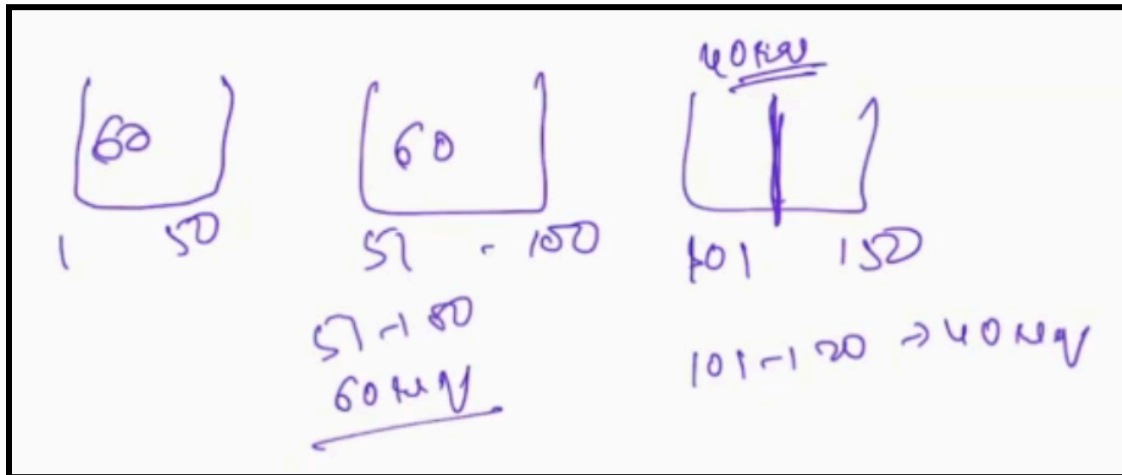 40
60 60
1 50 51 - 100 101 150
51-100
60
101-120 → 40